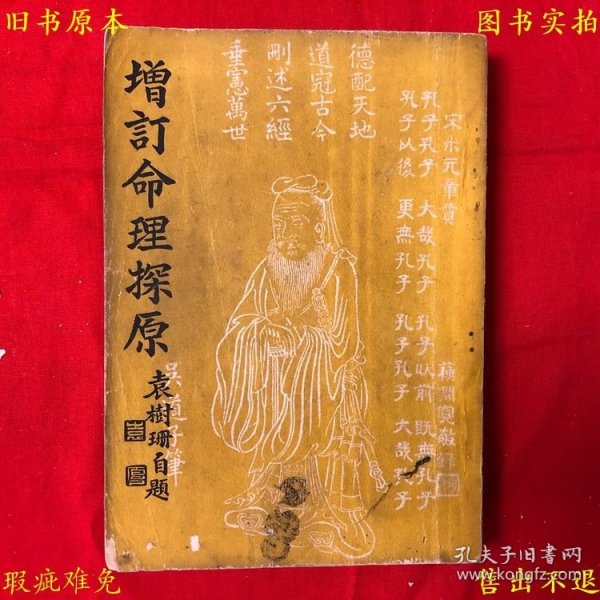 旧书原本
图书实拍
增訂命理探原
袁樹珊自題
德配天地
道冠古今
刪述六經
垂憲萬世
宋米元章贊
孔子孔子 大哉孔子 孔子以前 既無孔子
孔子以後 更無孔子 孔子孔子 大哉孔子
吳道子筆
瑕疵难免
售出不退
孔夫子旧书网
www.kongfz.com